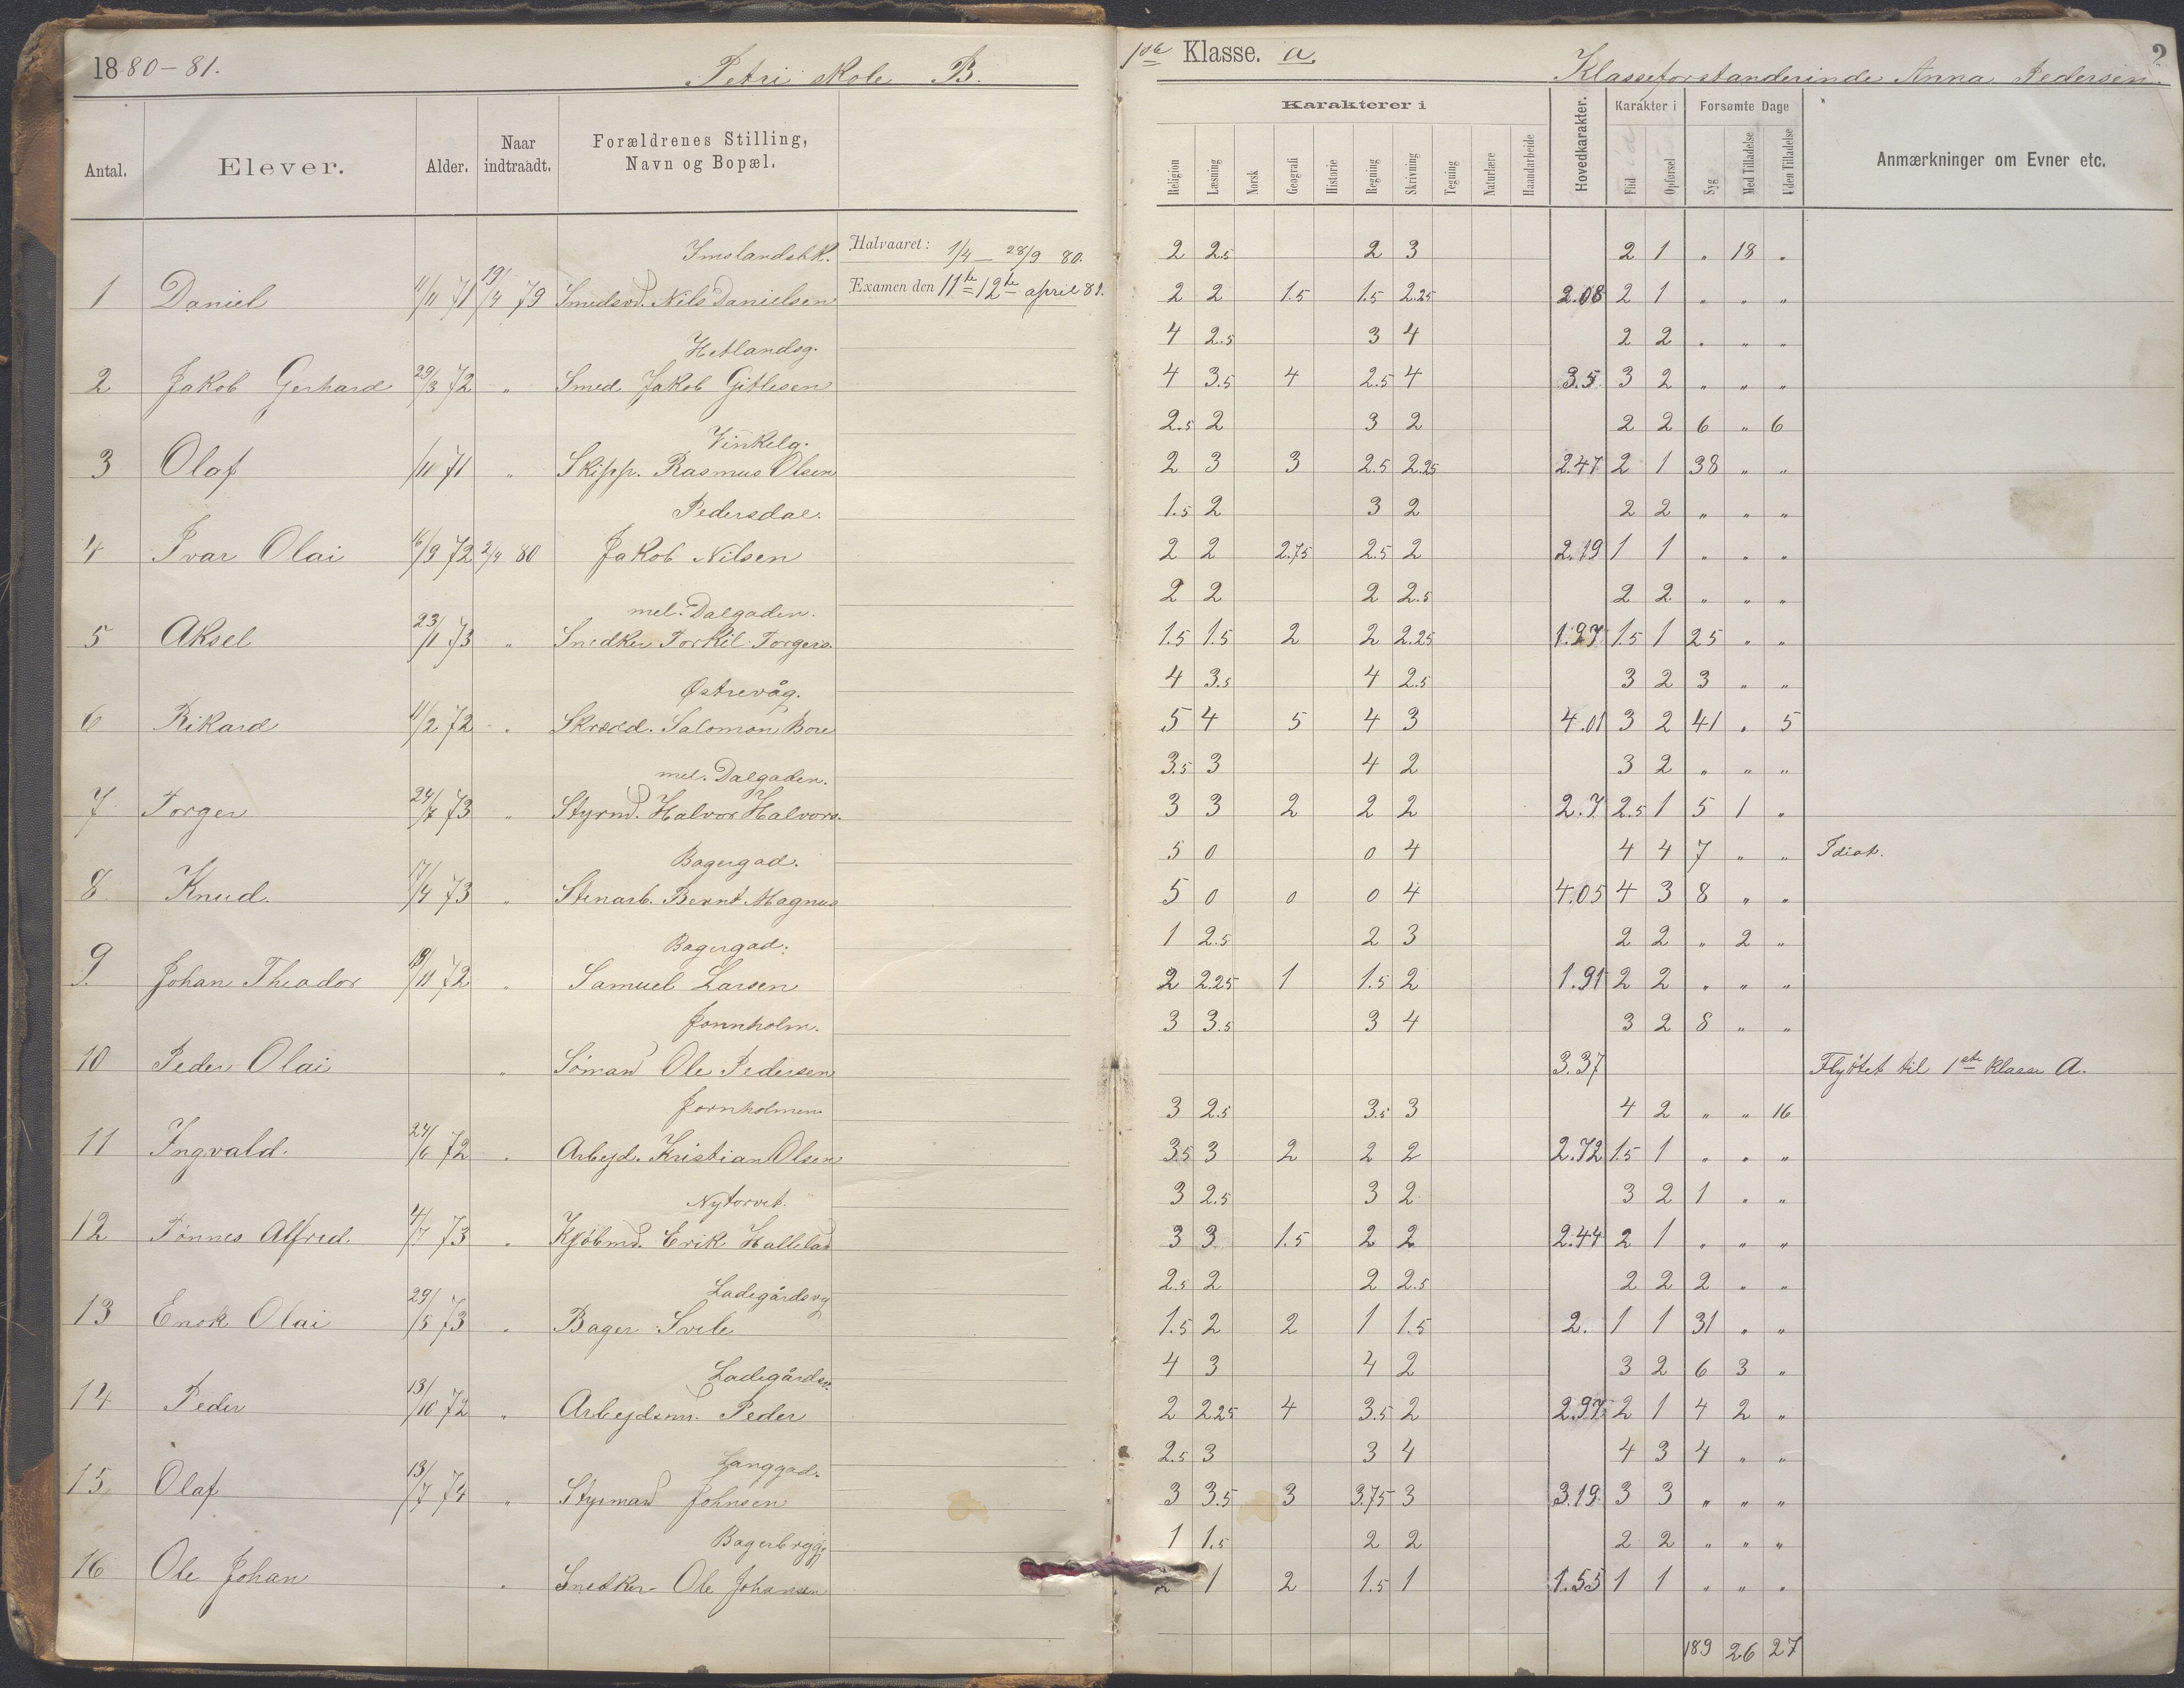 1880-81. Petri skole B. 1ste Klasse. a. Klasseforstanderinde Anna Pedersen. 2
Antal. Elever. Alder. Naar indtraadt. Forældrenes Stilling, Navn og Bopæl.
Karakterer i Hovedkarakter. Karakter i Forsømte Dage Anmærkninger om Evner etc.
Religion Læsning Norsk Geografi Historie Regning Skrivning Tegning Naturlære Haandarbeide Flid Opførsel Syg Med Tilladelse Uden Tilladelse
Imslandsbk. Halvaaret: 1/4 — 28/9 80. 2 2.5 2 3 2 1 „ 18 „
1 Daniel 11/11 71 19/4 79 Smedsvd. Nils Danielsen Examen den 11te 12te april 81. 2 2 1.5 1.5 2.25 2.08 2 1 „ „ „
Hetlandsg. 4 2.5 3 4 2 2 „ „ „
2 Jakob Gerhard 29/3 72 „ Smed Jakob Gitlesen 4 3.5 4 2.5 4 3.5 3 2 „ „ „
Vinkelg. 2.5 2 3 2 2 2 6 „ 6
3 Olaf /11 71 „ Skipp. Rasmus Olsen 2 3 3 2.5 2.25 2.47 2 1 38 „ „
Pedersdal. 1.5 2 3 2 2 2 „ „ „
4 Ivar Olai 16/9 72 2/4 80 Jakob Nilsen 2 2 2.75 2.5 2 2.19 1 1 „ „ „
mel. Dalgaden. 2 2 2 2.5 2 2 „ „ „
5 Aksel 23/1 73 „ Snedker Torkil Torgers. 1.5 1.5 2 2 2.25 1.97 1.5 1 25 „ „
Østrevåg. 4 3.5 4 2.5 3 2 3 „ „
6 Rikard 11/2 72 „ Skræd. Salomon Bore 5 4 5 4 3 4.01 3 2 41 „ 5
mel. Dalgaden. 3.5 3 4 2 3 2 „ „ „
7 Torger 24/7 73 „ Styrmd. Halvor Halvors. 3 3 2 2 2 2.7 2.5 1 5 1 „
Bagergad. 5 0 0 4 4 4 7 „ „ Idiot.
8 Knud. 17/4 73 „ Stenarb. Bernt Magnus 5 0 0 0 4 4.05 4 3 8 „ „
Bagergad. 1 2.5 2 3 2 2 „ 2 „
9. Johan Theador 18/11 72 „ Samuel Larsen 2 2.25 1 1.5 2 1.91 2 2 „ „ „
Jonnholm. 3 3.5 3 4 3 2 8 „ „
10 Peder Olai „ Sömand Ole Pedersen 3.37 Flyttet til 1ste Klasse A.
Jornholmen 3 2.5 3.5 3 4 2 „ „ 16
11 Ingvald. 24/6 72 „ Arbejd. Kristian Olsen 3.5 3 2 2 2 2.72 1.5 1 „ „ „
Nytorvet. 3 2.5 3 2 3 2 1 „ „
12 Tönnes Alfred. 4/7 73 „ Kjöbmd. Erik Hallelad 3 3 1.5 2 2 2.44 2 1 „ „ „
Ladegårdsvg 2.5 2 2 2.5 2 2 2 „ „
13 Enok Olai 29/5 73 „ Bager Svele 1.5 2 2 1 1.5 2. 1 1 31 „ „
Ladegårdsv. 4 3 4 2 3 2 6 3 „
14 Peder 13/10 72 „ Arbejdsm. Peder 2 2.25 4 3.5 2 2.97 2 1 4 2 „
Langgad. 2.5 3 3 4 4 3 4 „ „
15 Olaf 13/7 74 „ Styrmand Johnsen 3 3.5 3 3.75 3 3.19 3 3 „ „ „
Bagerbrygg 1 1.5 2 2 2 2 „ „ „
16 Ole Johan „ Snedker Ole Johansen 2 1 2 1.5 1 1.55 1 1 „ „ „
189 26 27